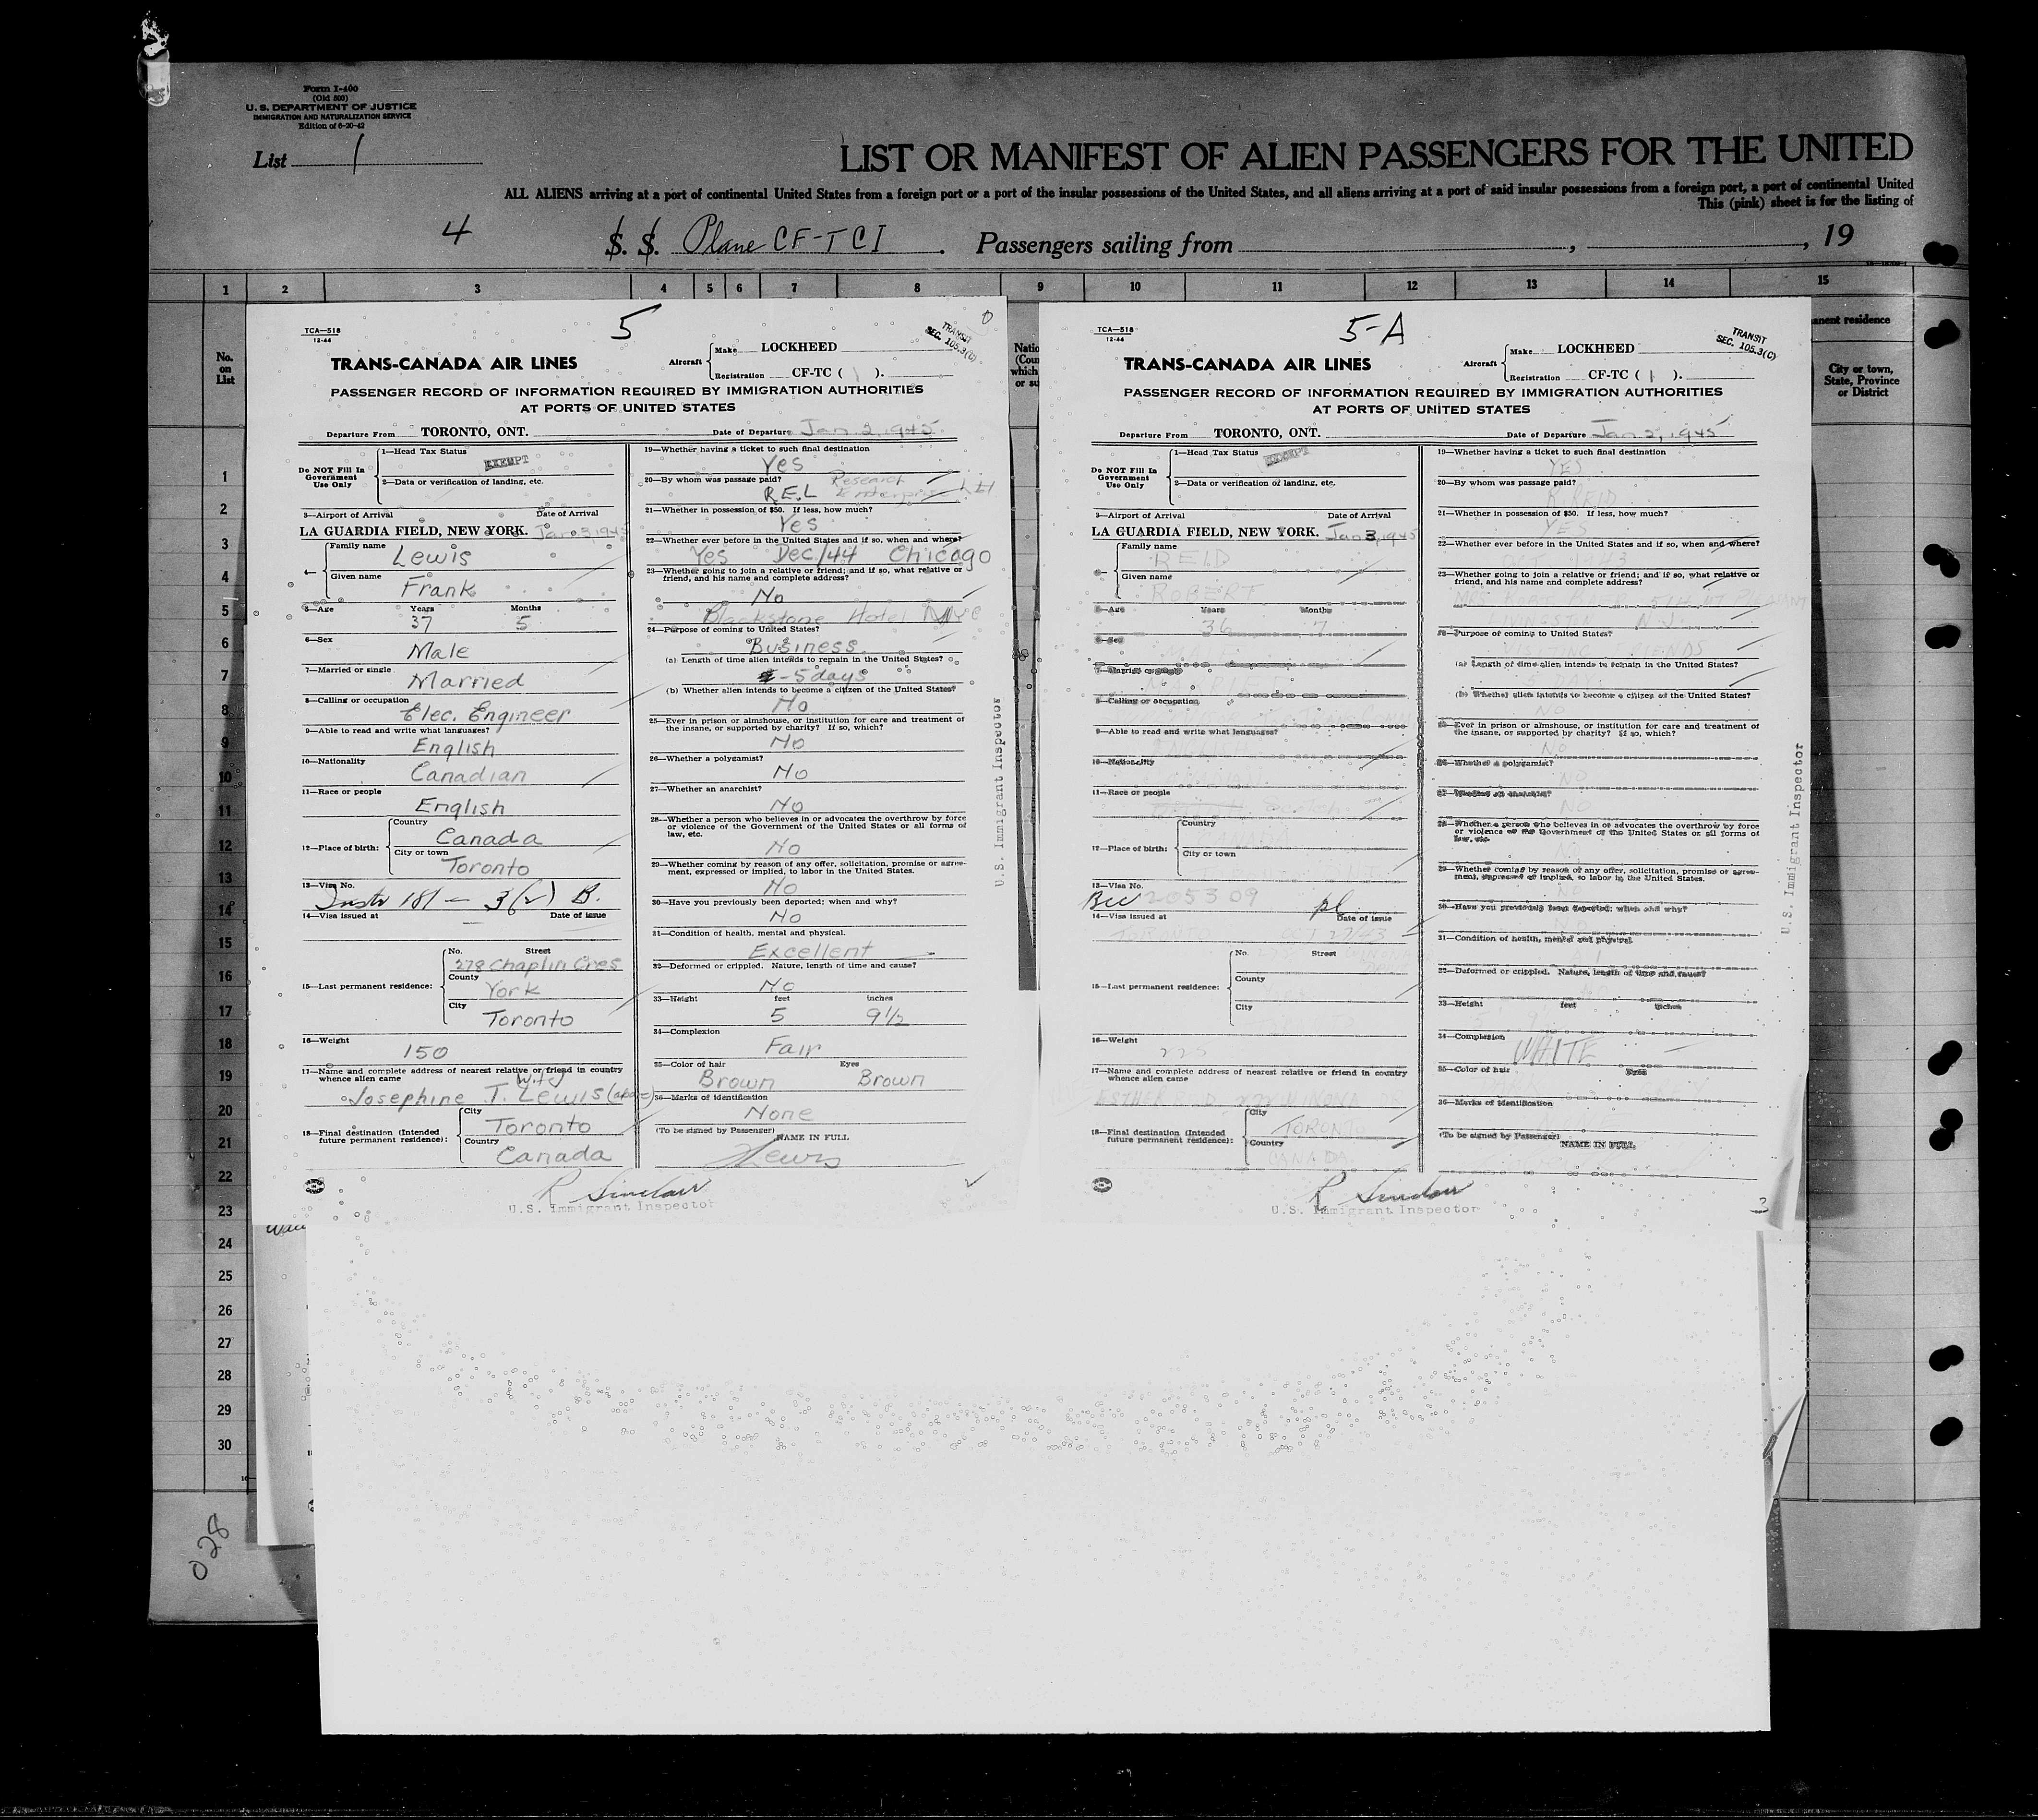 Form I-400
(Old 500)
U. S. DEPARTMENT OF JUSTICE
IMMIGRATION AND NATURALIZATION SERVICE
Edition of 6-20-42
List 1
LIST OR MANIFEST OF ALIEN PASSENGERS FOR THE UNITED
ALL ALIENS arriving at a port of continental United States from a foreign port or a port of the insular possessions of the United States, and all aliens arriving at a port of said insular possessions from a foreign port, a port of continental United
This (pink) sheet is for the listing of
4 S. S. Plane CF-TCI. Passengers sailing from , , 19
1 2 3 4 5 6 7 8 9 10 11 12 13 14 15
No.
on
List
1
2
3
4
5
6
7
8
9
10
11
12
13
14
15
16
17
18
19
20
21
22
23
24
25
26
27
28
29
30
028
5
TCA—518
12-44
TRANSIT
SEC. 105.3(C)
TRANS-CANADA AIR LINES
Aircraft Make LOCKHEED
Registration CF-TC ( ).
PASSENGER RECORD OF INFORMATION REQUIRED BY IMMIGRATION AUTHORITIES
AT PORTS OF UNITED STATES
Departure From TORONTO, ONT. Date of Departure Jan 2, 1945.
Do NOT Fill In
Government
Use Only
1—Head Tax Status EXEMPT
2—Data or verification of landing, etc.
3—Airport of Arrival Date of Arrival
LA GUARDIA FIELD, NEW YORK. Jan 3, 1945
Family name
Lewis
Given name
Frank
5—Age Years Months
37 5
6—Sex
Male
7—Married or single
Married
8—Calling or occupation
Elec. Engineer
9—Able to read and write what languages?
English
10—Nationality
Canadian
11—Race or people
English
12—Place of birth:
Country
Canada
City or town
Toronto
13—Visa No.
Instr 181 — 3(2) B.
14—Visa issued at Date of issue
15—Last permanent residence:
No. Street
278 Chaplin Cres
County
York
City
Toronto
16—Weight
150
17—Name and complete address of nearest relative or friend in country
whence alien came
Wife
Josephine T. Lewis (above)
18—Final destination (Intended
future permanent residence):
City
Toronto
Country
Canada
19—Whether having a ticket to such final destination
Yes
20—By whom was passage paid?
R.E.L Research
21—Whether in possession of $50. If less, how much?
Yes
22—Whether ever before in the United States and if so, when and where?
Yes Dec/44 Chicago
23—Whether going to join a relative or friend; and if so, what relative or
friend, and his name and complete address?
No
Blackstone Hotel NYC
24—Purpose of coming to United States?
Business
(a) Length of time alien intends to remain in the United States?
-5 days
(b) Whether alien intends to become a citizen of the United States?
No
25—Ever in prison or almshouse, or institution for care and treatment of
the insane, or supported by charity? If so, which?
No
26—Whether a polygamist?
No
27—Whether an anarchist?
No
28—Whether a person who believes in or advocates the overthrow by force
or violence of the Government of the United States or all forms of
law, etc.
No
29—Whether coming by reason of any offer, solicitation, promise or agree-
ment, expressed or implied, to labor in the United States.
No
30—Have you previously been deported; when and why?
No
31—Condition of health, mental and physical.
Excellent
32—Deformed or crippled. Nature, length of time and cause?
No
33—Height feet inches
5 9½
34—Complexion
Fair
35—Color of hair Eyes
Brown Brown
36—Marks of identification
None
(To be signed by Passenger) NAME IN FULL
Lewis
R Sinclair
U.S. Immigrant Inspector
U.S. Immigrant Inspector
5-A
TCA—518
12-44
TRANSIT
SEC. 105.3(C)
TRANS-CANADA AIR LINES
Aircraft Make LOCKHEED
Registration CF-TC ( ).
PASSENGER RECORD OF INFORMATION REQUIRED BY IMMIGRATION AUTHORITIES
AT PORTS OF UNITED STATES
Departure From TORONTO, ONT. Date of Departure Jan 2, 1945
Do NOT Fill In
Government
Use Only
1—Head Tax Status
2—Data or verification of landing, etc.
3—Airport of Arrival Date of Arrival
LA GUARDIA FIELD, NEW YORK. Jan 3, 1945
Family name
REID
Given name
ROBERT
5—Age Years Months
36 7
6—Sex
7—Married or single
8—Calling or occupation
9—Able to read and write what languages?
10—Nationality
11—Race or people
12—Place of birth:
Country
CANADA
City or town
13—Visa No.
205309
14—Visa issued at Date of issue
TORONTO OCT 27/43
15—Last permanent residence:
No. Street
County
City
16—Weight
225
17—Name and complete address of nearest relative or friend in country
whence alien came
ESTHER REID
18—Final destination (Intended
future permanent residence):
City
TORONTO
Country
CANADA
19—Whether having a ticket to such final destination
YES
20—By whom was passage paid?
R. REID
21—Whether in possession of $50. If less, how much?
YES
22—Whether ever before in the United States and if so, when and where?
23—Whether going to join a relative or friend; and if so, what relative or
friend, and his name and complete address?
LIVINGSTON N.J.
24—Purpose of coming to United States?
VISITING FRIENDS
(a) Length of time alien intends to remain in the United States?
(b) Whether alien intends to become a citizen of the United States?
NO
25—Ever in prison or almshouse, or institution for care and treatment of
the insane, or supported by charity? If so, which?
NO
26—Whether a polygamist?
NO
27—Whether an anarchist?
NO
28—Whether a person who believes in or advocates the overthrow by force
or violence of the Government of the United States or all forms of
law, etc.
29—Whether coming by reason of any offer, solicitation, promise or agree-
ment, expressed or implied, to labor in the United States.
30—Have you previously been deported; when and why?
31—Condition of health, mental and physical.
32—Deformed or crippled. Nature, length of time and cause?
33—Height feet inches
34—Complexion
WHITE
35—Color of hair Eyes
36—Marks of identification
(To be signed by Passenger) NAME IN FULL
R Sinclair
U.S. Immigrant Inspector
U.S. Immigrant Inspector
City or town,
State, Province
or District